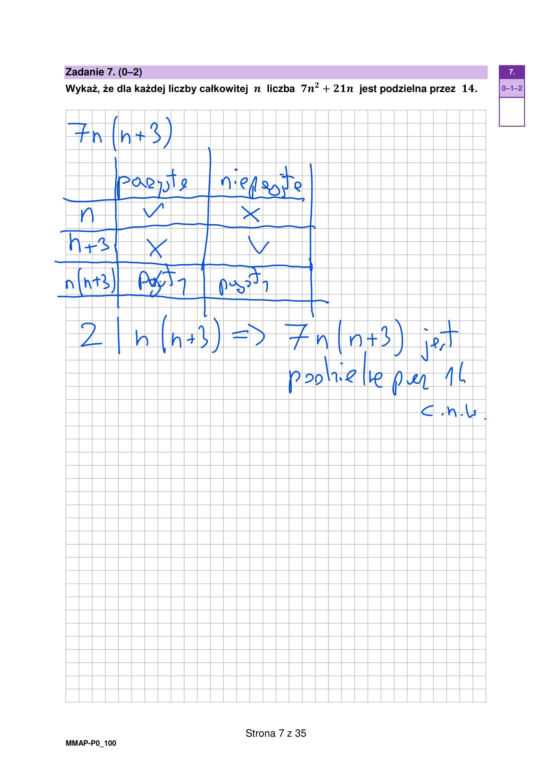 Zadanie 7. (0–2)
7.
Wykaż, że dla każdej liczby całkowitej n liczba 7n² + 21n jest podzielna przez 14.
0–1–2
7n(n+3)
parzyste nieparzyste
n ✓ ×
n+3 × ✓
n(n+3)
2 | n(n+3) => 7n(n+3) jest
podzielne przez 14
c.n.w.
Strona 7 z 35
MMAP-P0_100